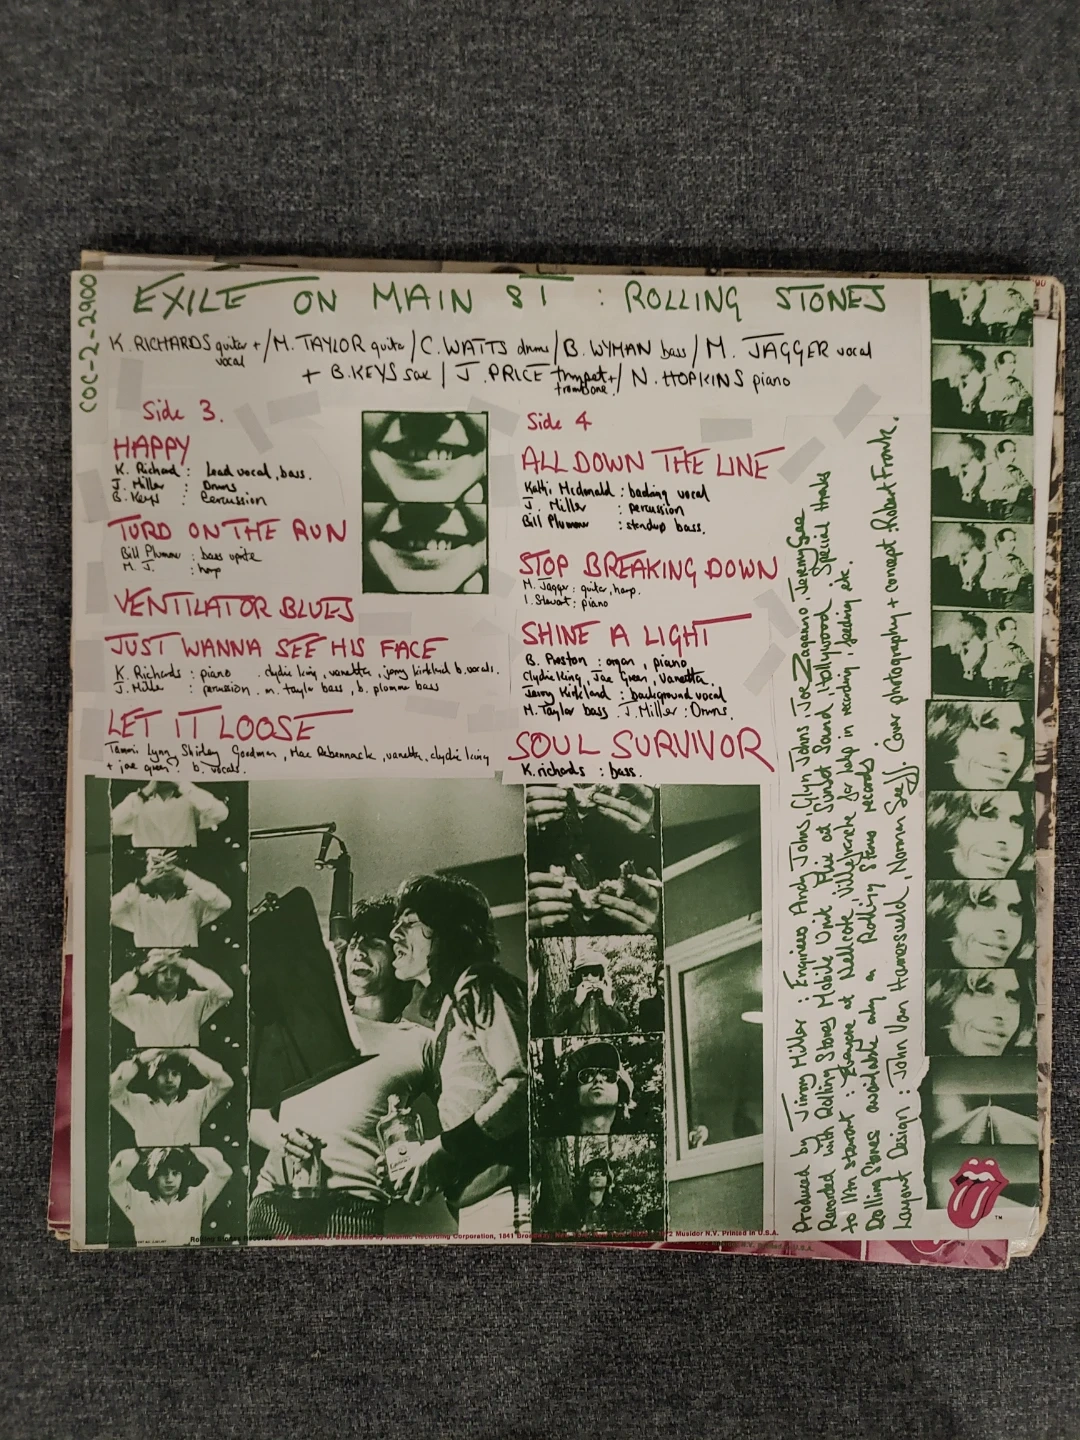 COC-2-2900
EXILE ON MAIN ST : ROLLING STONES
K. RICHARDS guitar + vocal / M. TAYLOR guitar / C. WATTS drums / B. WYMAN bass / M. JAGGER vocal
+ B. KEYS sax / J. PRICE trumpet + trombone. / N. HOPKINS piano
Side 3.
HAPPY
K. Richard : lead vocal, bass.
J. Miller : Drums
B. Keys : Percussion
TURD ON THE RUN
Bill Plummer : bass
M. J. : harp
VENTILATOR BLUES
JUST WANNA SEE HIS FACE
K. Richards : piano . clydie king, vanetta, jerry kirkland b. vocals.
J. Miller : percussion . m. taylor bass, b. plummer bass
LET IT LOOSE
Tammi Lynn, Shirley Goodman, Mac Rebennack, vanetta, clydie king
+ joe green : b. vocals.
Side 4
ALL DOWN THE LINE
Kathi Mcdonald : backing vocal
J. Miller : percussion
Bill Plummer : standup bass.
STOP BREAKING DOWN
M. Jagger : guitar, harp.
I. Stewart : piano
SHINE A LIGHT
B. Preston : organ, piano
Clydie king, Joe Green, Vanetta.
Jerry Kirkland : background vocal
M. Taylor bass . J. Miller : Drums.
SOUL SURVIVOR
K. richards : bass.
Produced by Jimmy Miller : Engineers Andy Johns, Glyn Johns, Joe Zagarino, Jeremy Gee
Recorded with Rolling Stones Mobile Unit + at Sunset Sound, Hollywood. Special thanks
to Ian stewart : + everyone at Nellcote, Villefranche for help in recording, feeding etc.
Rolling Stones available only on Rolling Stones records
Layout Design : John Van Hamersveld, Norman Seeff. Cover photography + concept : Robert Frank.
Rolling Stones Records
Recording Corporation, 1841 Broadway,
Musidor N.V. Printed in U.S.A.
TM